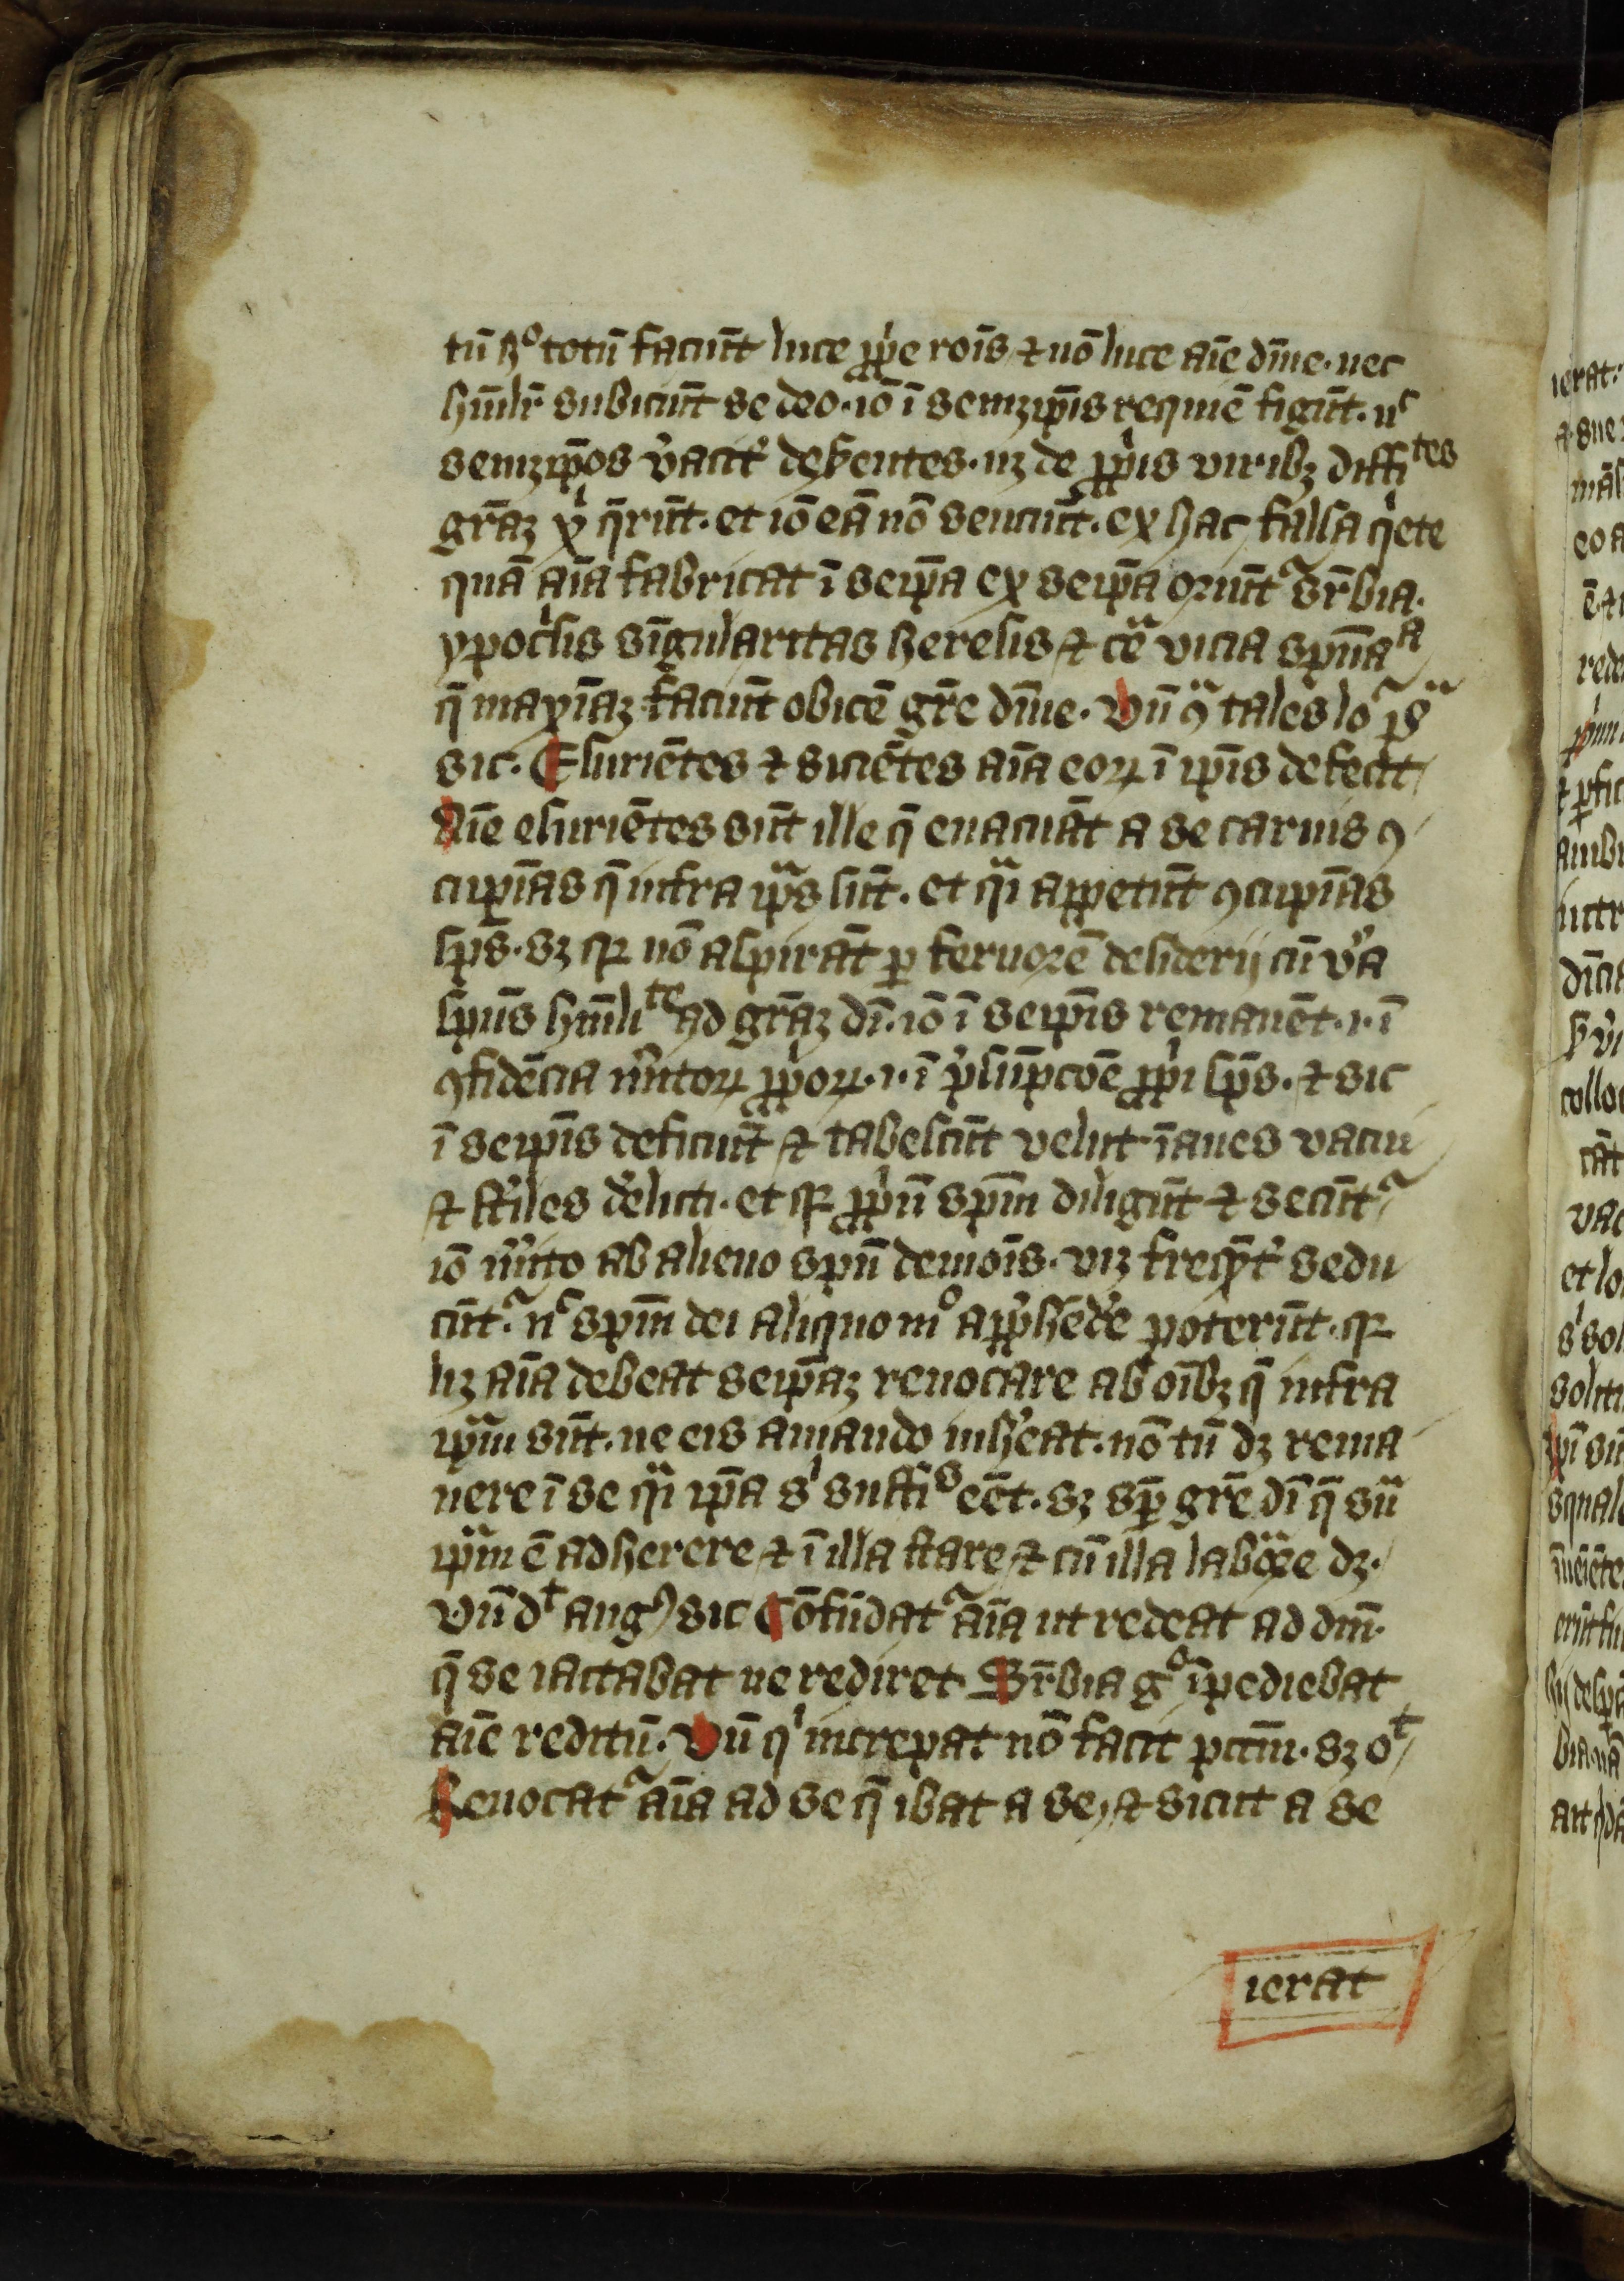 tū hͦ totū faciūt luce ꝓͥe rōis ⁊ nō luce aīe dīne. nec
hūilr̄ subiciūt se deo. iō ī semꝫip̄is requiē figūt. nͨ
semꝫip̄os v̓acit̓ deb̄entes. nꝫ de ꝓͥis viribꝫ diffites
gr̄aꝫ xͥ q̄rūt. et iō eā nō senciūt. ex hac falsa qͥete
quā aīa fabricat ī seip̄a ex seip̄a oriūtᷣ sr̄bia.
ypocͥsis sīgularitas heresis ⁊ cēᷓ vicia spūaᷓ
q̄ maxīaꝫ faciūt obicē gr̄e dīne. Vū ꝯᷓ tales loᷣ pͥsᷓ
sic. Esuriētes ⁊ siciētes aīa eoꝝ ī ip̄is defecit
Aīe esuriētes sūt ille q̄ euacuāt a se carnis ꝯ
cupīas q̄ infra ip̄ᷓs sūt. et qᷓi appetūt ꝯcupīas
sp̄s. sꝫ qꝛ nō aspirāt ꝑ feruorē desiderij cū v̓a
sp̄us hūiliᵗᵉ ad gr̄aꝫ dī. iō ī seip̄is remanēt .i. ī
ꝯfidēcia m̓itoꝝ ꝓͥoꝝ .i. ī p̓sūpcōe ꝓͥi sp̄s. ⁊ sic
ī seip̄is deficiūt ⁊ tabescūt velut īanes vacui
⁊ st̓iles d̓elicti. et qꝛ ꝓͥū spm̄ diligūt ⁊ secūtᷣ
iō m̓ito ab alieno spū demōis. viꝫ freqn̄t̓ sedu
cūtᷣ. nͨ spm̄ dei aliquo mͦ app̓hēd̓e poterūt. qꝛ
lꝫ aīa debeat seip̄aꝫ reuocare ab oībꝫ q̄ infra
ip̄ᷓm sūt. ne eis amando inh̓eat. nō tn̄ dꝫ rema
nere ī se qᷓi ip̄a sͥ suffiˢ eēt. sꝫ sꝑ gr̄e dī q̄ suᷓ
ip̄ᷓm ē adherere ⁊ ī illa stare ⁊ cū illa laborᷓe dꝫ.
Vn̄ dᵗ augꝰ sic Cōfūdatᷣ aīa ut redeat ad dn̄m.
q̄ se iactabat ne rediret. Sr̄bia gͦ īpediebat
aīe reditū. Vn̄ qͥ increpat nō facit pctm̄. sꝫ oᵗ
Reuocatᷣ aīa ad se q̄ ibat a se, ⁊ sicut a se
ierat